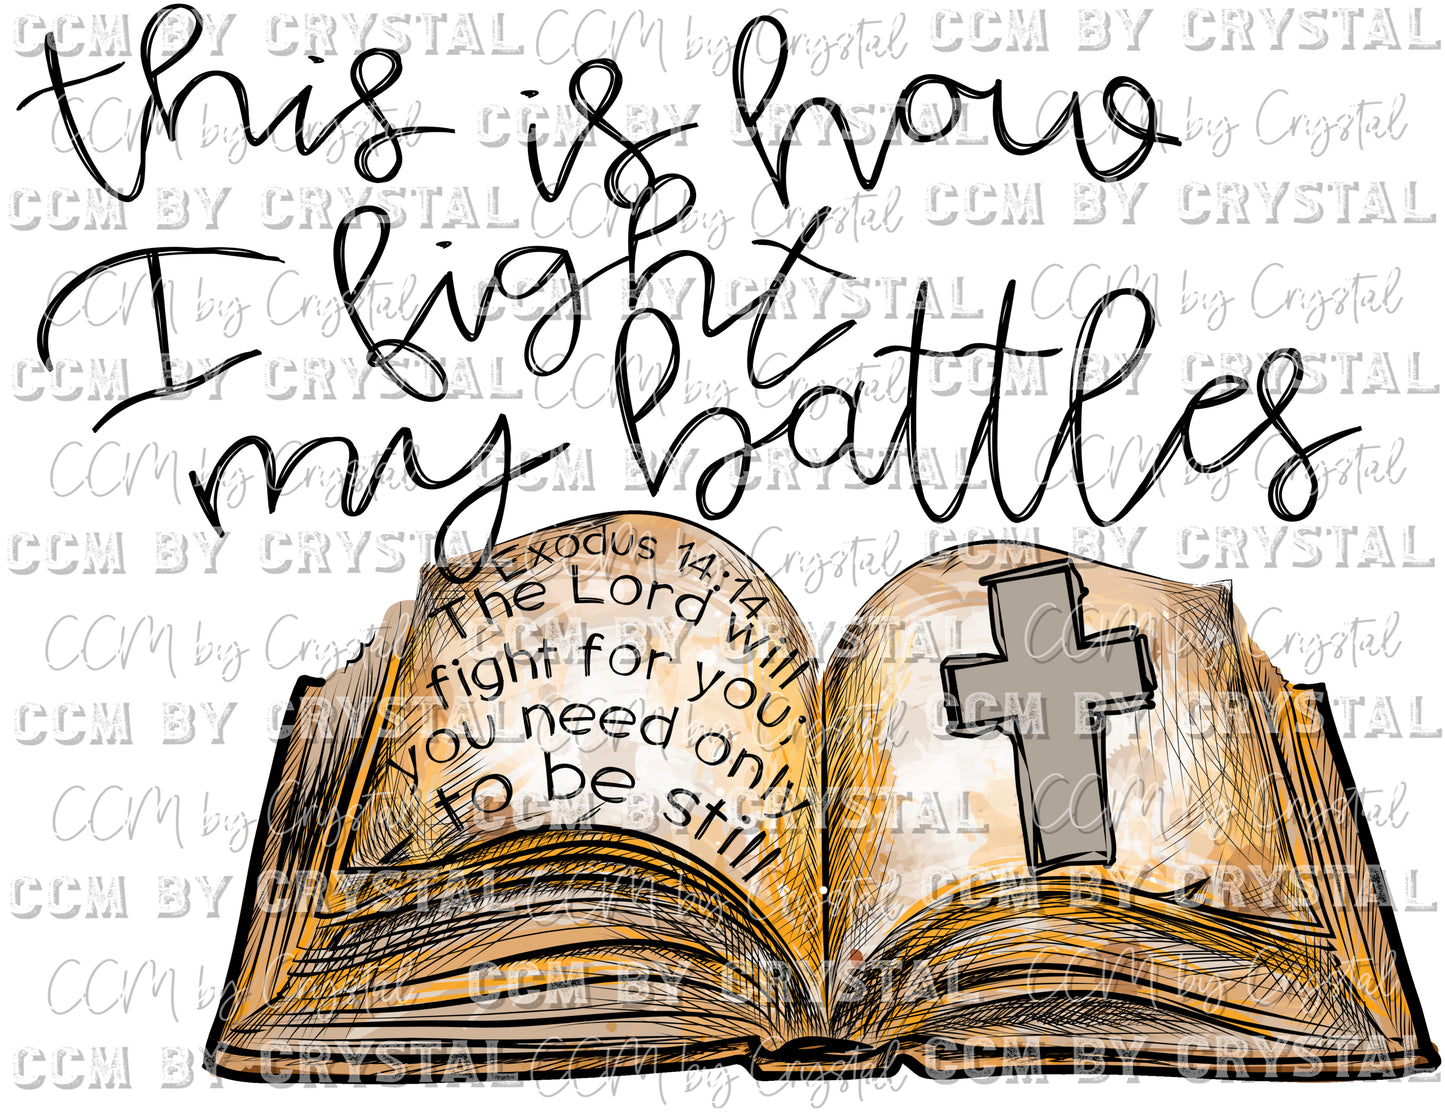 CCM BY CRYSTAL CCM by Crystal CCM BY CRYSTAL
this is how
CCM by Crystal CCM BY CRYSTAL CCM by Crystal
CCM BY CRYSTAL CCM by Crystal CCM BY CRYSTAL
I fight
CCM by Crystal CCM BY CRYSTAL CCM by Crystal
CCM BY CRYSTAL CCM by Crystal CCM BY CRYSTAL
my battles
CCM by Crystal CCM BY CRYSTAL CCM by Crystal
CCM BY CRYSTAL CCM by Crystal CCM BY CRYSTAL
Exodus 14:14
The Lord will
fight for you;
you need only
to be still
CCM by Crystal CCM BY CRYSTAL CCM by Crystal
CCM BY CRYSTAL CCM by Crystal CCM BY CRYSTAL
CCM by Crystal CCM BY CRYSTAL CCM by Crystal
CCM BY CRYSTAL CCM by Crystal CCM BY CRYSTAL
CCM by Crystal CCM BY CRYSTAL CCM by Crystal
CCM BY CRYSTAL CCM by Crystal CCM BY CRYSTAL